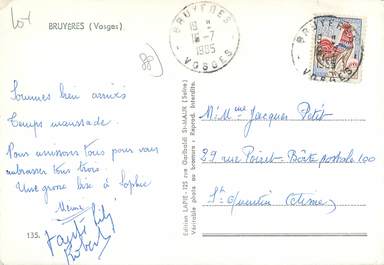 lot
BRUYÈRES (Vosges)
88
BRUYERES
18 H
16-7
1965
VOSGES
BRUYERES
VOSGES
Sommes bien arrivés
Temps maussade.
Nous unissons tous pour vous
embrasser tous trois.
Une grosse bise à Sophie
Meme
Robert
135.
Edition LAPIE - 125 rue Garibaldi St-MAUR (Seine)
Véritable photo au bromure - Reprod. Interdite.
M. Mme Jacques Petit
29 rue Poiret - Boîte postale 100
St Quentin (Aisne)